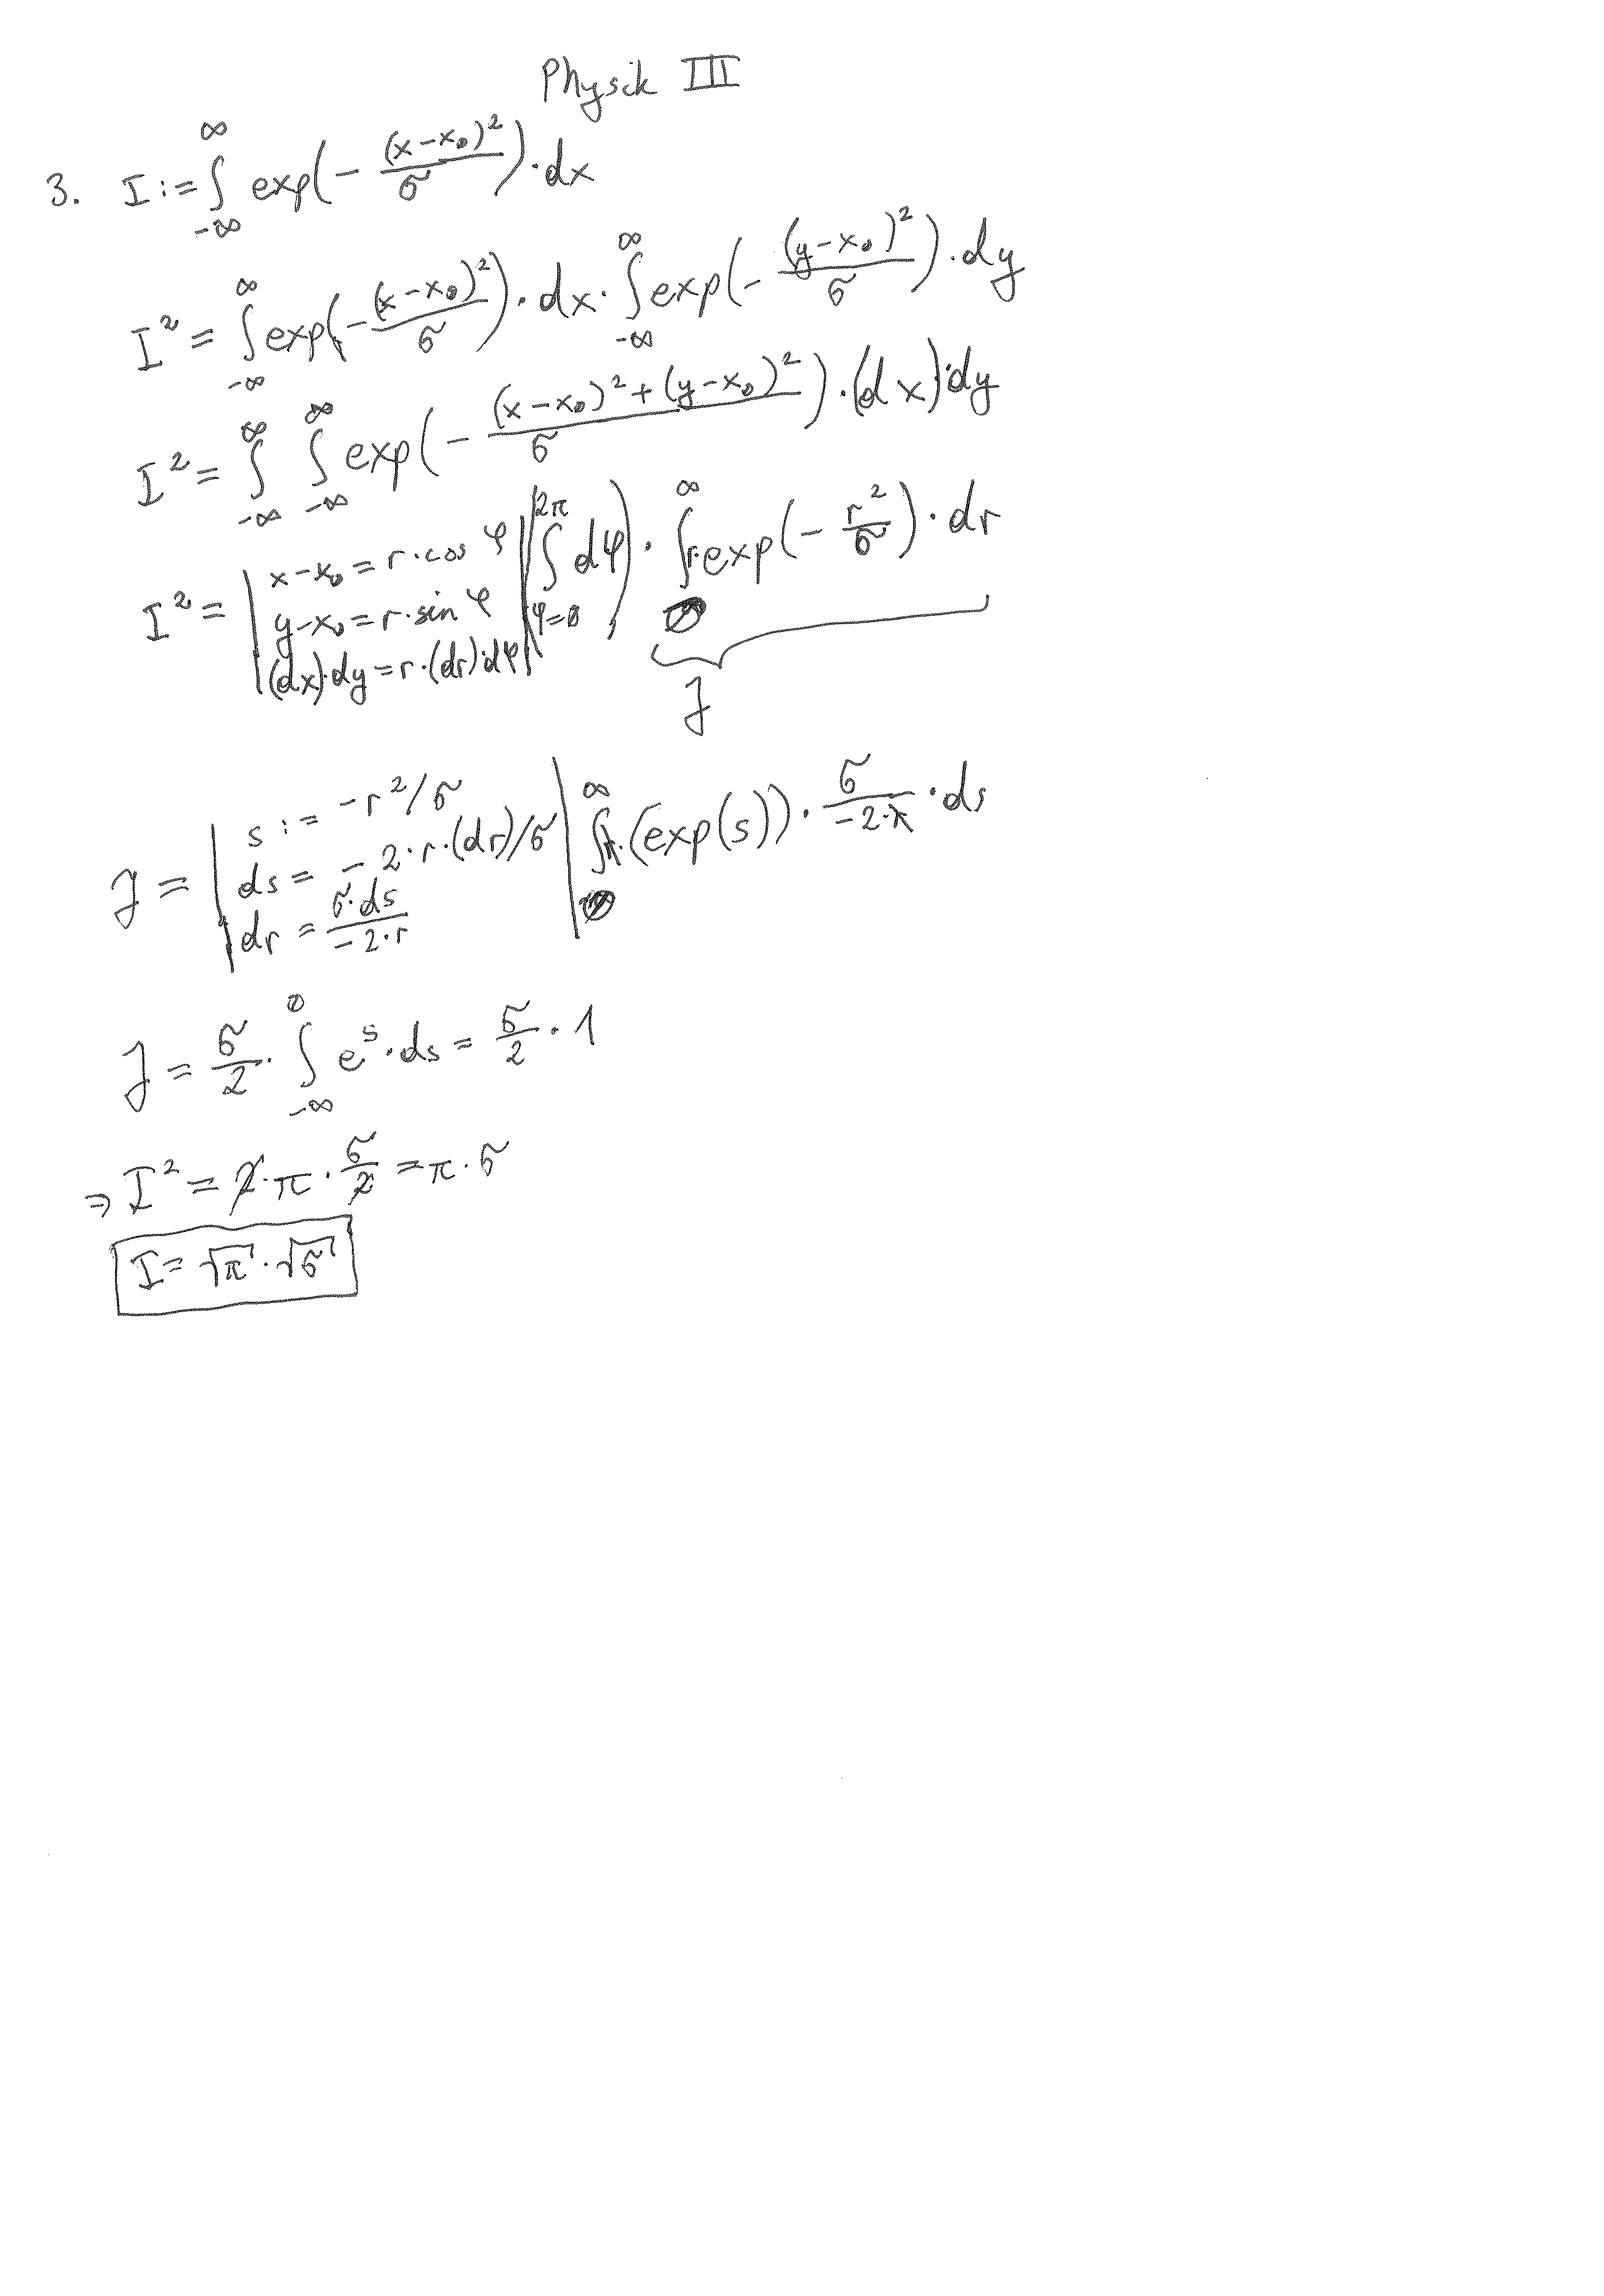 Physik III
3. I := ∫_{-∞}^{∞} exp(- (x-x₀)²/σ) · dx
I² = ∫_{-∞}^{∞} exp(- (x-x₀)²/σ) · dx · ∫_{-∞}^{∞} exp(- (y-x₀)²/σ) · dy
I² = ∫_{-∞}^{∞} ∫_{-∞}^{∞} exp(- ((x-x₀)² + (y-x₀)²)/σ) · (dx) · dy
I² = | x-x₀ = r · cos φ
y-x₀ = r · sin φ
(dx) · dy = r · (dr) · dφ | (∫_{φ=0}^{2π} dφ) · ∫_{0}^{∞} r · exp(- r²/σ) · dr
J
J = | s := -r²/σ
ds = -2 · r · (dr)/σ
dr = σ · ds/(-2 · r) | ∫^{∞} r · (exp(s)) · σ/(-2 · r) · ds
J = σ/2 · ∫_{-∞}^{0} e^s · ds = σ/2 · 1
⇒ I² = 2 · π · σ/2 = π · σ
I = √π · √σ